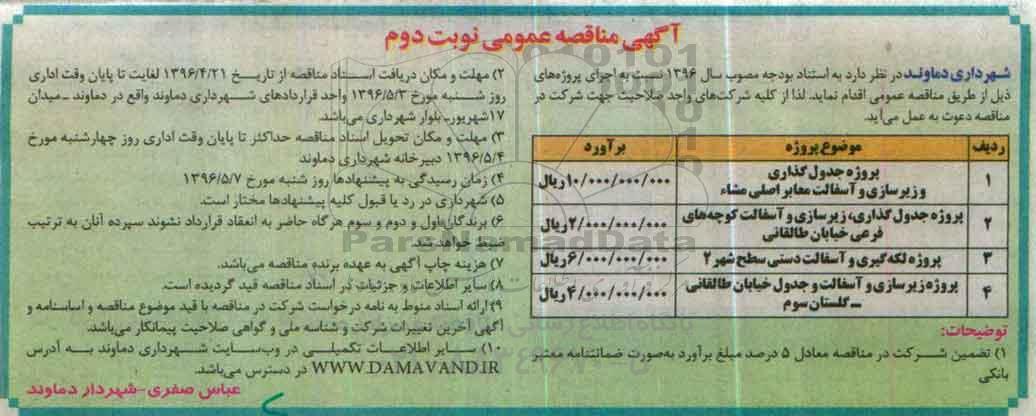 آگهی مناقصه عمومی نوبت دوم
شهرداری دماوند در نظر دارد به استناد بودجه مصوب سال ۱۳۹۶ نسبت به اجرای پروژه‌های
ذیل از طریق مناقصه عمومی اقدام نماید. لذا از کلیه شرکت‌های واجد صلاحیت جهت شرکت در
مناقصه دعوت به عمل می‌آید.
ردیف موضوع پروژه برآورد
۱ پروژه جدول گذاری و زیرسازی و آسفالت معابر اصلی مشاء ۱۰/۰۰۰/۰۰۰/۰۰۰ ریال
۲ پروژه جدول گذاری، زیرسازی و آسفالت کوچه‌های فرعی خیابان طالقانی ۲/۰۰۰/۰۰۰/۰۰۰ ریال
۳ پروژه لکه گیری و آسفالت دستی سطح شهر ۲ ۶/۰۰۰/۰۰۰/۰۰۰ ریال
۴ پروژه زیرسازی و آسفالت و جدول خیابان طالقانی ــ گلستان سوم ۴/۰۰۰/۰۰۰/۰۰۰ ریال
توضیحات:
۱) تضمین شرکت در مناقصه معادل ۵ درصد مبلغ برآورد به‌صورت ضمانتنامه معتبر
بانکی
۲) مهلت و مکان دریافت اسناد مناقصه از تاریخ ۱۳۹۶/۴/۲۱ لغایت تا پایان وقت اداری
روز شنبه مورخ ۱۳۹۶/۵/۳ واحد قراردادهای شهرداری دماوند واقع در دماوند ــ میدان
۱۷شهریور بلوار شهرداری می‌باشد.
۳) مهلت و مکان تحویل اسناد مناقصه حداکثر تا پایان وقت اداری روز چهارشنبه مورخ
۱۳۹۶/۵/۴ دبیرخانه شهرداری دماوند
۴) زمان رسیدگی به پیشنهادها روز شنبه مورخ ۱۳۹۶/۵/۷
۵) شهرداری در رد یا قبول کلیه پیشنهادها مختار است.
۶) برندگان اول و دوم و سوم هر گاه حاضر به انعقاد قرارداد نشوند سپرده آنان به ترتیب
ضبط خواهد شد.
۷) هزینه چاپ آگهی به عهده برنده مناقصه می‌باشد.
۸) سایر اطلاعات و جزئیات در اسناد مناقصه قید گردیده است.
۹) ارائه اسناد منوط به نامه درخواست شرکت در مناقصه با قید موضوع مناقصه و اساسنامه و
آگهی آخرین تغییرات شرکت و شناسه ملی و گواهی صلاحیت پیمانکار می‌باشد.
۱۰) سایر اطلاعات تکمیلی در وب‌سایت شهرداری دماوند به آدرس
WWW.DAMAVAND.IR در دسترس می‌باشد.
عباس صفری-شهردار دماوند
ParsNamadData